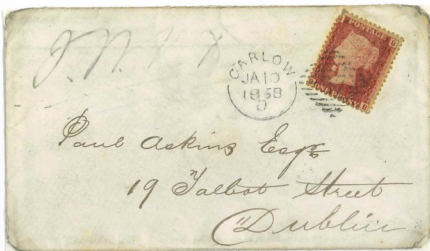 CARLOW
JA 10
1858
D
Paul Askins Esq
19 Talbot Street
Dublin